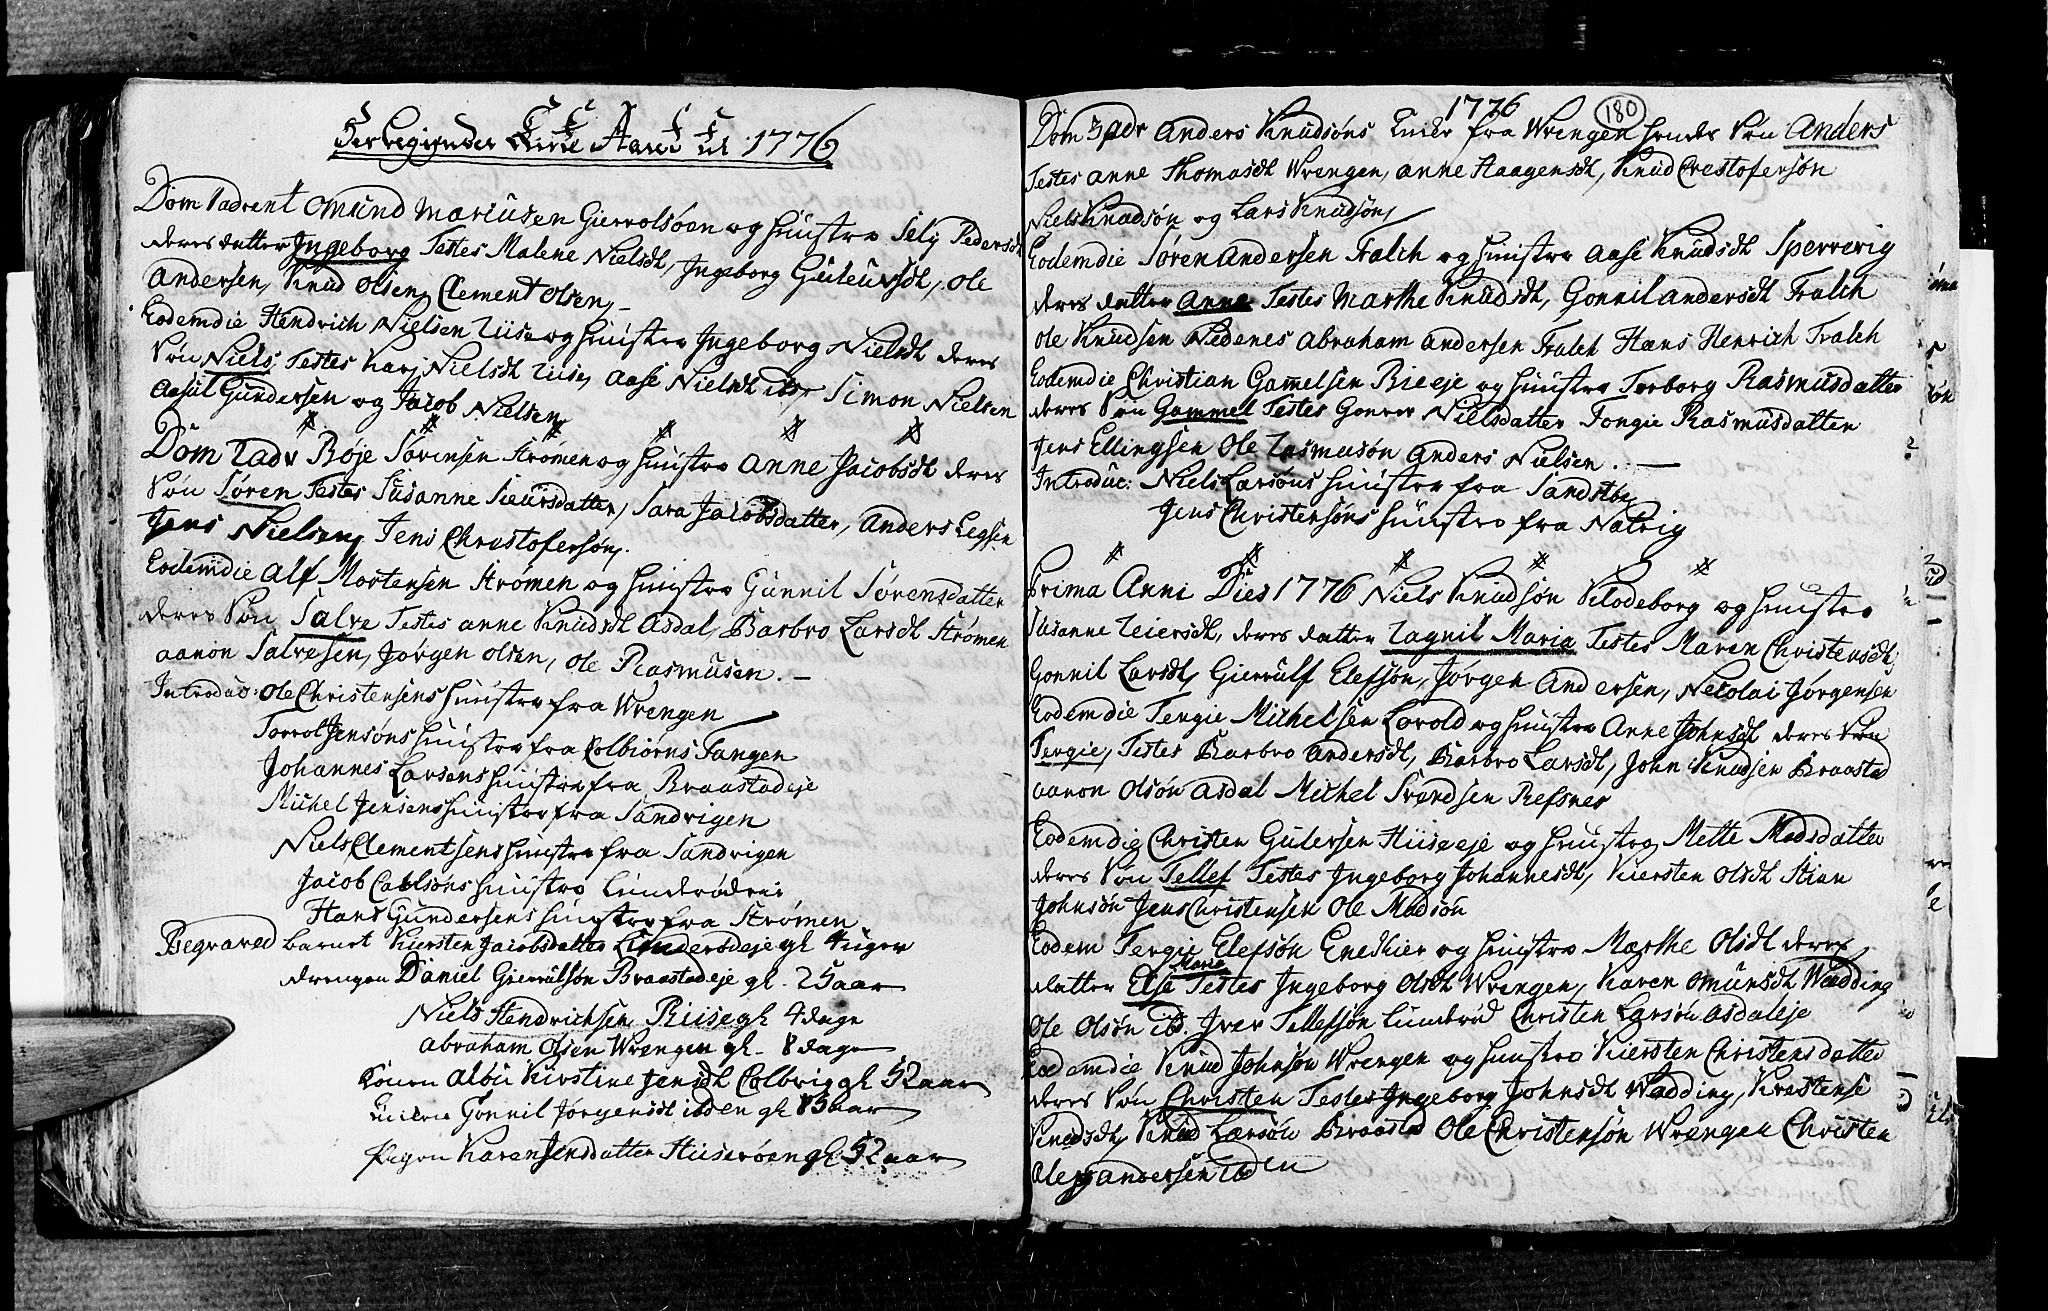 Her begynder Kirke Aaret til 1776
Dom 1 advent Omund Mariusen Gierrolsöen og Hustro Sely Pedersdt
deres datter Ingeborg Testes Malene Nielsdt, Ingeborg Guleursdt, Ole
Andersen, Knud Olsen, Clement Olsen,
Eodemdie Hendrich Nielsen Riise og Hustro Ingeborg Nielsdt deres
Søn Niels Testes Karj Nielsdt Riise, Aase Nielsdt ibd, Simon Nielsen
Aasul Gundersen og Jacob Nielsen,
Dom 2 adv Røje Sørensen Strømen og Hustro Anne Jacobsdt deres
Søn Søren Testes Susanne Siursdatter, Sara Jacobsdatter, Anders Legsen
Jens Nielsen, Jens Christofersøn.
Eodemdie Alf Mortensen Strømen og Hustro Gunnil Sørensdatter
deres Søn Salve Testes Anne Knudsdt Asdal, Barbro Larsdt Strømen
Aanon Salvesen, Jørgen Olsen, Ole Rasmusen.
Introduc: Ole Christensens Hustro fra Wrengen
Torrol Jensøns Hustro fra Colbiørns Tangen
Johannes Larsens Hustro fra Braastadeje
Michel Jensens Hustro fra Sandvigen
Niels Clementsens Hustro fra Sandvigen
Jacob Carlsøns Hustro Lunderød
Hans Gundersens Hustro fra Strømen
Begraved barnet Kiersten Jacobsdatter Lunderødeje gl 4 uger
drengen Daniel Gierrulsøn Braastadeje gl. 2 5 aar
Niels Hendrichsen Riise gl 4 dage
Abraham Olsen Wrengen gl. 8 dage
Konen Kirstine Jensdt Colbrig gl 52 aar
Enken Gonnil Jørgensdt ibden gl 83 aar
Pigen Karen Jensdatter Huserøen gl 52 aar
1776
180
Dom 3 adv Anders Knudsøns Enke fra Wrengen hendes Søn Anders
Testes Anne Thomasdt Wrengen, Anne Haagensdt, Knud Crestofersøn
Niels Knudsøn og Lars Knudsøn,
Eodemdie Søren Andersen Fralch og Hustro Aase Knudsdt Spervevig
deres datter Anne Testes Marthe Knudsdt, Gonnil Andersdt Fralch
Ole Knudsen Nedenes Abraham Andersen Fralch Hans Henrich Fralch
Eodemdie Christian Gammelsen Bieeje og Hustro Torborg Rasmusdatter
deres Søn Gammel Testes Gonnor Nielsdatter Tongie Rasmusdatter
Jens Ellingsen Ole Rasmusøn Anders Nielsen.
Introduc: Niels Larsøns Hustro fra Sandstbe
Jens Christensøns Hustro fra Natvig
Prima Anni Dies 1776 Niels Knudsøn Klodeborg og Hustro
Susanne Reiersdt, deres datter Ragnil Maria Testes Maren Christensdt,
Gonnil Larsdt, Gierrulf Elefsøn, Jørgen Andersen, Nicolai Jørgensen
Eodemdie Tergie Michelsen Lovold og Hustro Anne Johnsdt deres Søn
Tergie, Testes Barbro Andersdt, Barbro Larsdt, John Knudsen Braastad
Aanon Olsøn Asdal Michel Svendsen Refsnes
Eodemdie Christen Gulersen Huseeje og Hustro Mette Madsdatter
deres Søn Tellef Testes Ingeborg Johannesdt, Kiersten Olsdt Stian
Johnsøn Jens Christensen Ole Madsøn
Eodem Tergie Elefsøn Enechier og Hustro Marthe Olsdt deres
datter Else Maria Testes Ingeborg Olsdt Wrengen, Karen Omunsdt Wædding
Ole Olsøn ibd. Iver Tellefsøn Lunderød Christen Larsøn Asdaleje
Eodemdie Knud Johnsøn Wrengen og Hustro Kiersten Christensdatter
deres Søn Christen Testes Ingeborg Johnsdt Wædding, Krestense
Knudsdt, Knud Larsøn Braastad Ole Christensøn Wrengen Christen
Andersen ibden